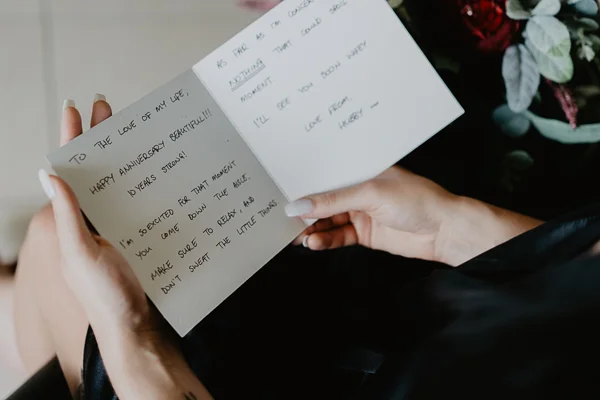 TO THE LOVE OF MY LIFE,
HAPPY ANNIVERSARY BEAUTIFUL!!!
10 YEARS STRONG!
I'M SO EXCITED FOR THAT MOMENT
YOU COME DOWN THE AISLE.
MAKE SURE TO RELAX, AND
DON'T SWEAT THE LITTLE THINGS
AS FAR AS I'M CONCER
NOTHING THAT COULD
MOMENT
I'LL SEE YOU SOON
LOVE FROM,